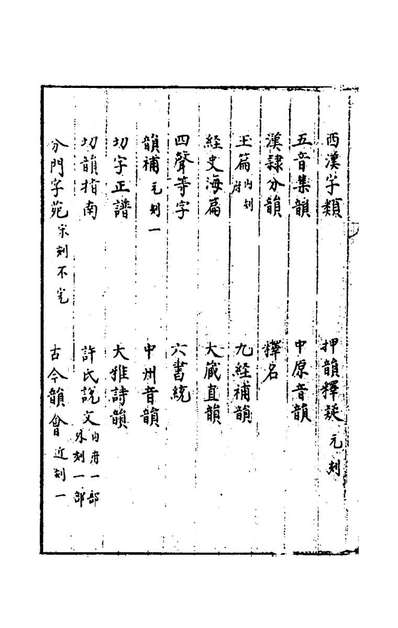 西漢字類　押韻釋疑元刻
五音集韻　中原音韻
漢隷分韻　釋名
玉篇内府刻　九經補韻
経史海篇　大藏直韻
四聲等字　六書統
韻補元刻一　中州音韻
切字正譜　大雅詩韻
切韻指南　許氏說文内府一部外刻一部
分門字苑宋刻不完　古今韻會近刻一